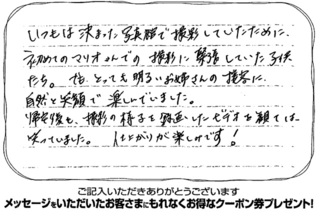 いつもは決まった写真館で撮影していたために、
初めてのマリオさんでの撮影に緊張していた子供
たち。でも、とっても明るいお姉さんの接客に、
自然と笑顔で楽しんでいました。
帰宅後も、撮影の様子を録画したビデオを観ては、
笑っていました。仕上がりが楽しみです!
ご記入いただきありがとうございます
メッセージをいただいたお客さまにもれなくお得なクーポン券プレゼント!